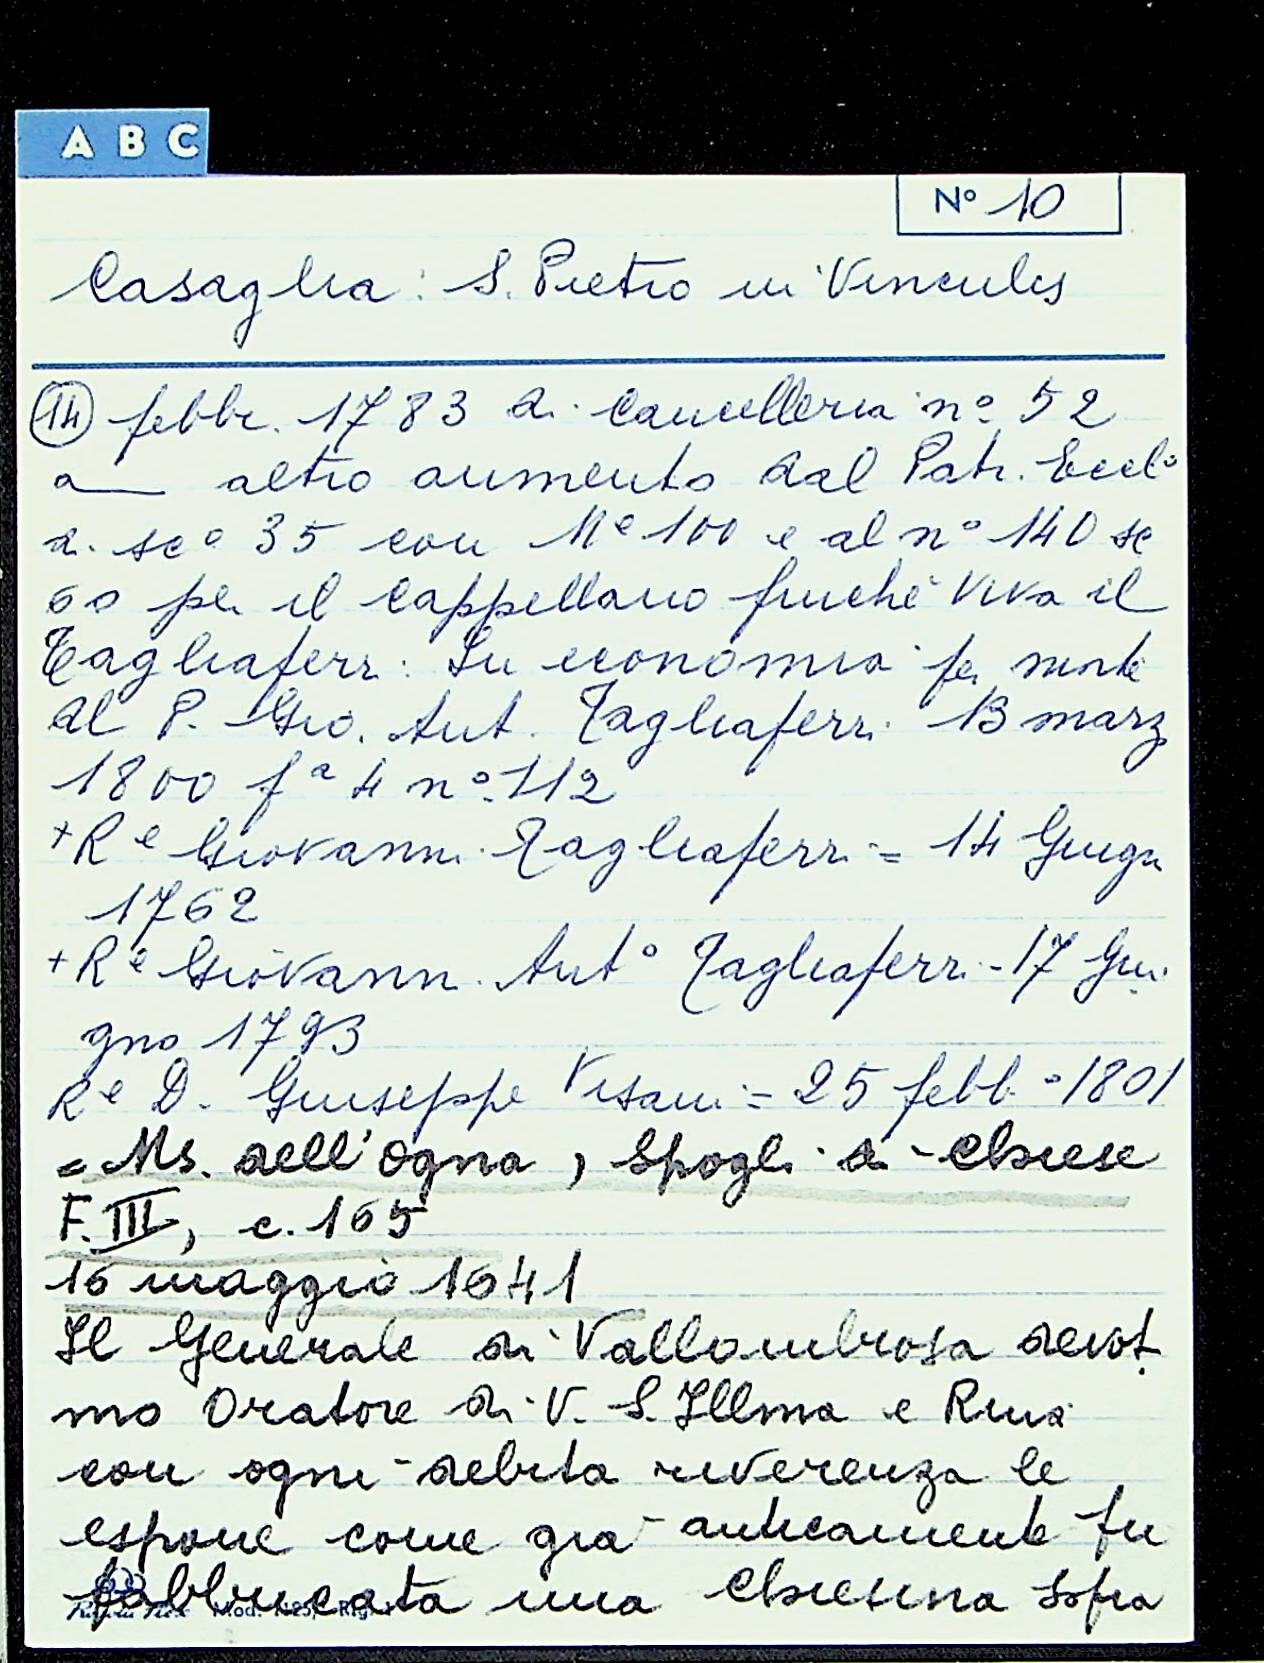 A B C
Nº 10
Casaglia: S. Pietro in Vinculis
14 febbr. 1783 di Cancelleria nº 52
a altro aumento dal Patr. Eccl.º
di scº 35 con Me 100 e al nº 140 sc
60 per il Cappellano finchè viva il
Tagliaferri: In economia per morte
al P. Gio. Ant. Tagliaferri 13 marz
1800 fª 4 nº 112
+ Re Giovanni Tagliaferri = 14 Giugn
1762
+ Re Giovann. Antº Tagliaferri - 17 Giu
gno 1793
Re D. Giuseppe Visani = 25 febb. 1801
= Ms. dell'Ogna, Spogli di Chiese
F. III, c. 165
16 maggio 1641
Il Generale di Vallombrosa devot.
mo Oratore di V. S. Illma e Rma
con ogni debita riverenza le
espone come già anticamente fu
fabbricata una Chiesina sopra